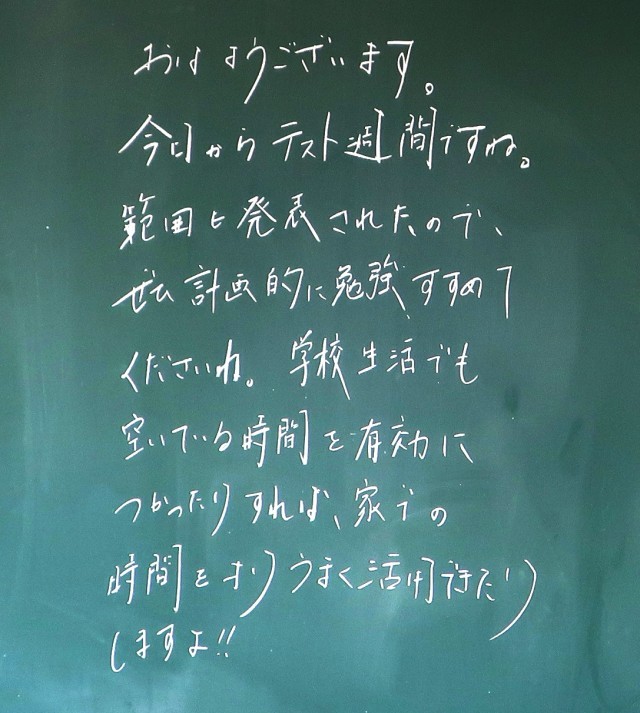 おはようございます。
今日からテスト週間ですね。
範囲も発表されたので、
ぜひ計画的に勉強すすめて
くださいね。学校生活でも
空いている時間を有効に
つかったりすれば、家での
時間をよりうまく活用できたり
しますよ!!